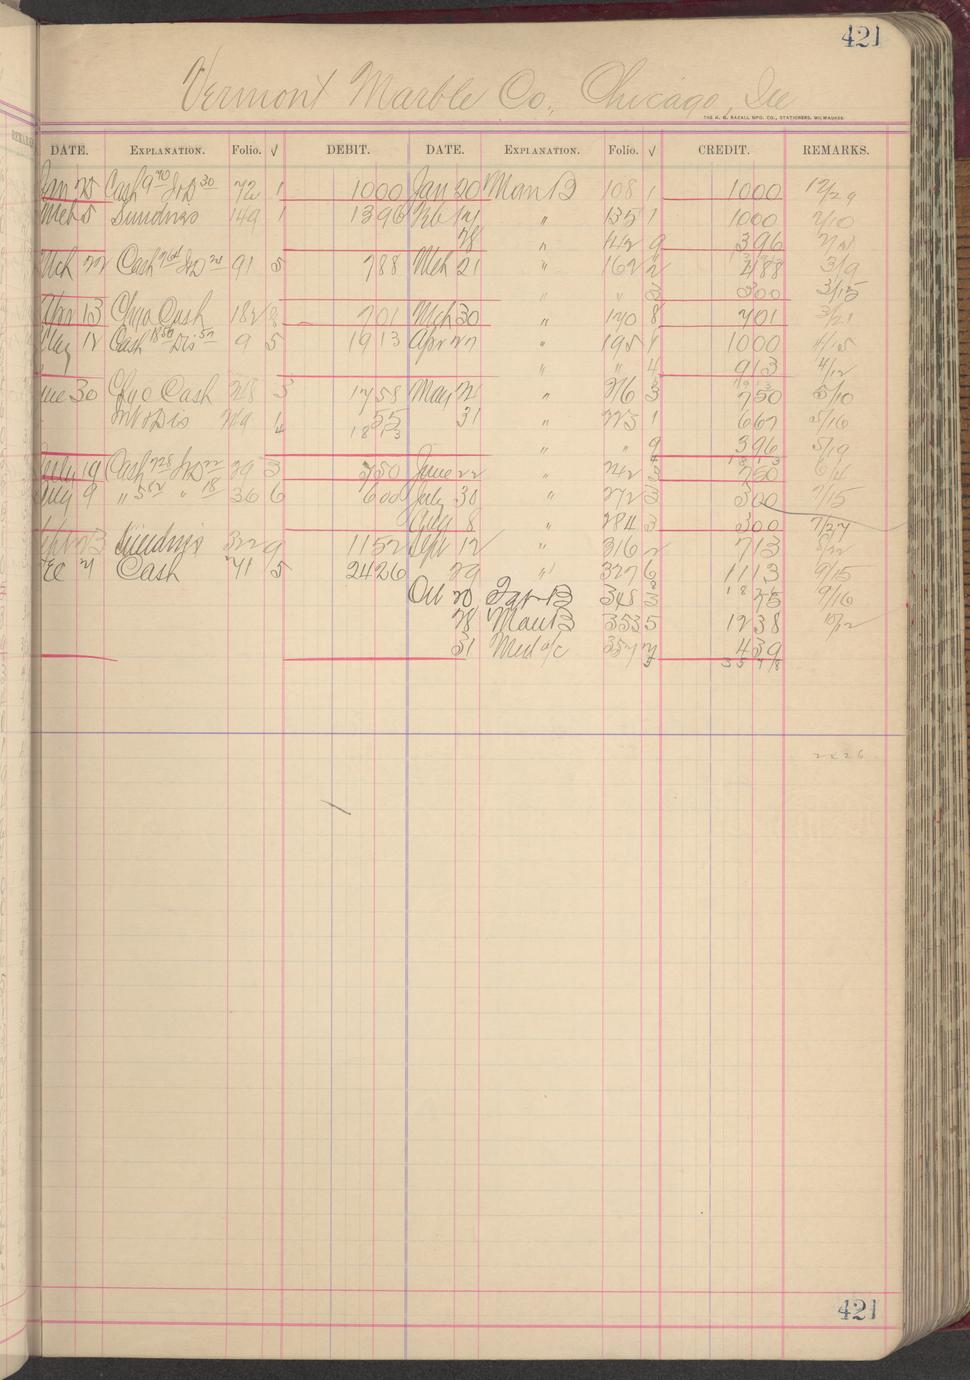 421
Vermont Marble Co., Chicago, Ill
THE H. G. RAZALL MFG. CO., STATIONERS, MILWAUKEE.
DATE. EXPLANATION. Folio. √ DEBIT. DATE. EXPLANATION. Folio. √ CREDIT. REMARKS.
Jan 25 Cash 9 70 30 72 1 1000 Jan 20 Man B 108 1 1000 12/29
Mch 5 Sundries 149 1 1396 Feb 14 " 135 1 1000 2/10
28 " 142 9 396
Mch 22 Cash 91 5 788 Mch 21 " 162 2 488 3/9
" " 3 300 3/15
Apr 13 Chgo Cash 182 8 701 Mch 30 " 170 8 701 3/21
May 12 Cash 18 50 Dis 9 5 1913 Apr 27 " 195 1 1000 4/15
" " 4 913 4/12
June 30 Chgo Cash 248 5 1758 May 21 " 216 3 750 5/10
Dis 249 4 55 31 " 225 1 667 5/16
1813
" " 9 396 5/19
July 19 Cash 29 3 750 June 22 " 242 3 750
July 9 " 5 82 " 18 36 6 600 July 30 " 272 3 300 7/15
Aug 8 " 284 3 300 7/27
Sundries 322 9 1152 Sept 12 " 316 2 713
Dec 21 Cash 41 5 2426 29 " 327 6 1113 9/15
Oct 20 B 348 3 75 9/16
28 Man B 353 5 1238 10/12
31 Md a/c 357 7 439
2426
421